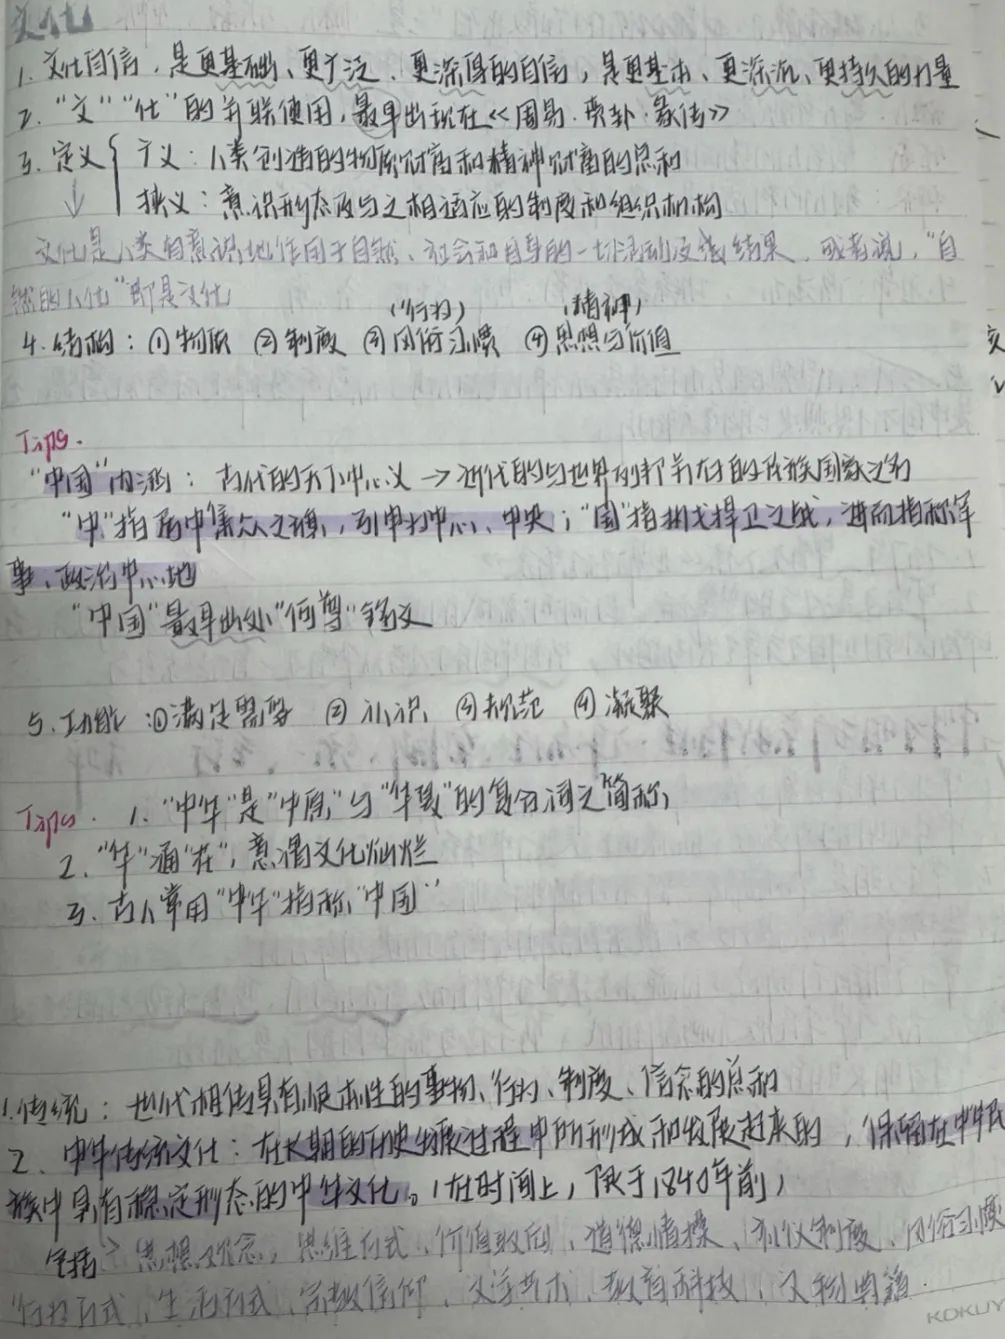 文化
1. 文化自信，是更基础、更广泛、更深厚的自信，是更基本、更深沉、更持久的力量
2. “文”“化”的并联使用，最早出现在《周易·贲卦·彖传》
3. 定义 广义：人类创造的物质财富和精神财富的总和
狭义：意识形态及与之相适应的制度和组织机构
文化是人类有意识地作用于自然、社会和自身的一切活动及其结果，或者说，“自
然的人化”即是文化
(行为) (精神)
4. 结构：①物质 ②制度 ③风俗习惯 ④思想与价值
Tips.
“中国”内涵：古代的天下中心义→近代的与世界列邦并存的民族国家之名
“中”指居中集众之旗，引申为中心、中央；“国”指执戈捍卫之城，进而指称军
事、政治中心地
“中国”最早出处“何尊”铭文
5. 功能 ①满足需要 ② 认识 ③规范 ④凝聚
Tips. 1. “中华”是“中原”与“华夏”的复合词之简称；
2. “华”通“花”，意谓文化灿烂
3. 古人常用“中华”指称“中国”
1. 传统：世代相传具有根本性的事物、行为、制度、信念的总和
2. 中华传统文化：在长期的历史发展过程中所形成和发展起来的，保留在中华民
族中具有稳定形态的中华文化。(在时间上，限于1840年前)
包括：思想观念，思维方式、价值取向、道德情操、礼仪制度、风俗习惯
行为方式、生活方式、宗教信仰、文学艺术、教育科技、文物典籍.
KOKUY